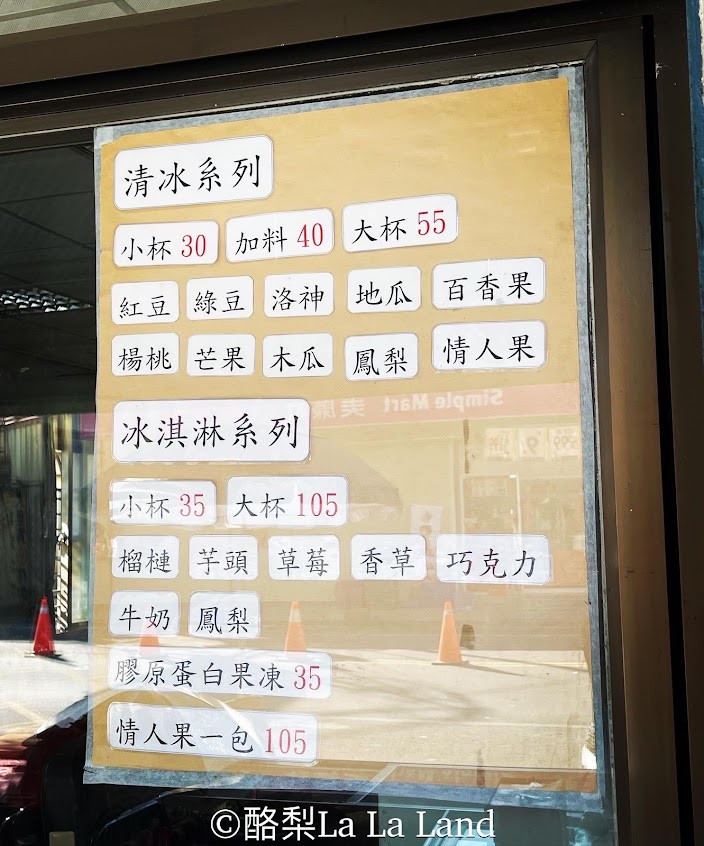 清冰系列
小杯 30 加料 40 大杯 55
紅豆 綠豆 洛神 地瓜 百香果
楊桃 芒果 木瓜 鳳梨 情人果
冰淇淋系列
小杯 35 大杯 105
榴槤 芋頭 草莓 香草 巧克力
牛奶 鳳梨
膠原蛋白果凍 35
情人果一包 105
Simple Mart 美廉
©酪梨La La Land